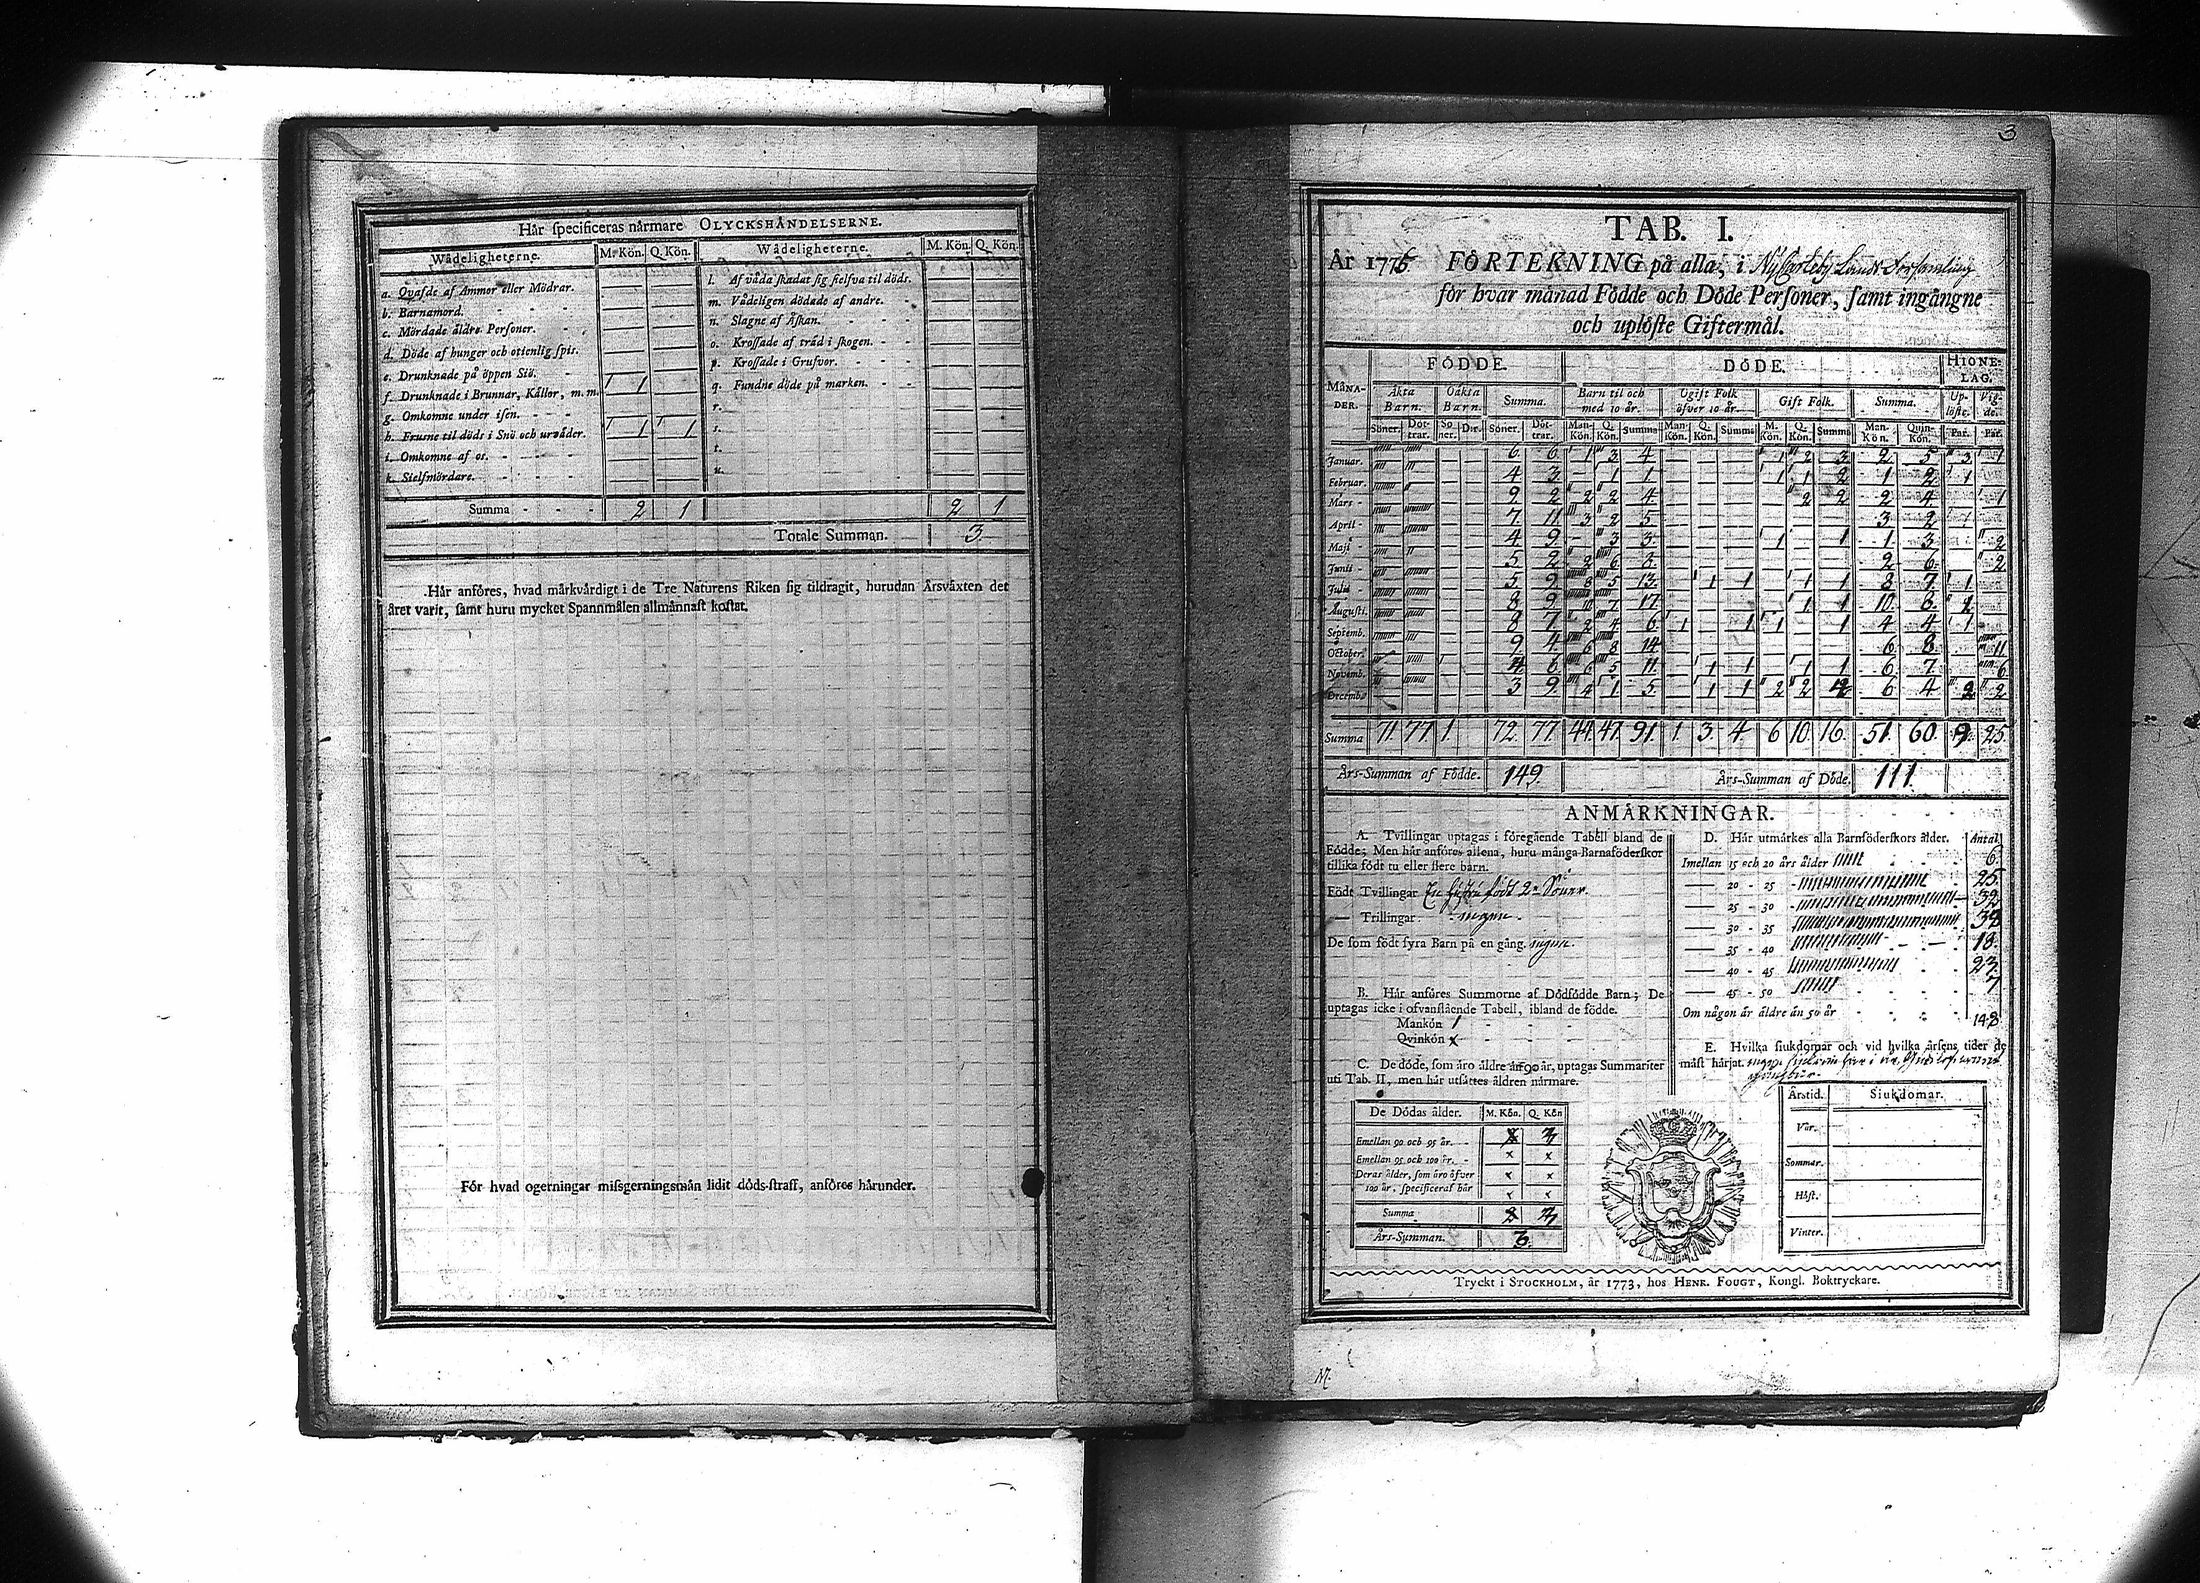 Hår specificeras nårmare OLYCKSHÅNDELSERNE.
Wådeligheterne. M. Kön. Q. Kön. Wådeligheterne. M. Kön. Q. Kön.
a. Qvafde af Ammor eller Mödrar. — — l. Af våda skadat sig sielfva til döds. — —
b. Barnamord. — — m. Vådeligen dödade af andre. — —
c. Mördade åldre Personer. — — n. Slagne af Åskan. — —
d. Döde af hunger och otienlig spis. — — o. Krossade af tråd i skogen. — —
e. Drunknade på öppen Siö. 1 — p. Krossade i Grufvor. — —
f. Drunknade i Brunnar, Kållor, m. m. — — q. Fundne döde på marken. — —
g. Omkomne under isen. — — r. — —
h. Frusne til döds i Snö och urvåder. 1 1 s. — —
i. Omkomne af os. — — t. — —
k. Sielfmördare. — — u. — —
Summa 2 1 2 1
Totale Summan. 3.
Hår anföres, hvad mårkvårdigt i de Tre Naturens Riken sig tildragit, hurudan Årsvåxten det
året varit, samt huru mycket Spannmålen allmånnast kostat.
För hvad ogerningar missgerningsmån lidit döds-straff, anföres hårunder.
3
TAB. I.
År 1776 FÖRTEKNING på alla, i NyCarleby Lands Forsamling
för hvar månad Födde och Döde Personer, samt ingångne
och uplöste Giftermål.
MÅNADER. FÖDDE. DÖDE. HIONELAG.
Åkta Barn. Oåkta Barn. Summa. Barn til och med 10 år. Ogift Folk öfver 10 år. Gift Folk. Summa. Uplöste. Vigde.
Söner. Döttrar. Söner. Dr. Söner. Döttrar. Man-Kön. Q. Kön. Summa Man-Kön. Q. Kön. Summa M. Kön. Q. Kön. Summa Man-Kön. Quin-Kön. Par. Par.
Januar. 6 6 1 3 4 — — — 1 2 3 2 5 3 1
Februar. 4 3 — 1 1 — — — 1 1 2 1 2 1 —
Mars 9 2 2 2 4 — — — — 2 2 2 4 — 1
April 7 11 3 2 5 — — — — — — 3 2 1 —
Maji 4 9 — 3 3 — — — 1 — 1 1 3 — 2
Junii 5 2 2 6 8 — — — — — — 2 6 — 2
Julii 5 9 8 5 13 — 1 1 — 1 1 8 7 1 —
Augusti. 8 9 10 7 17 — — — — 1 1 10 8
Septemb. 8 7 2 4 6 1 — 1 1 — 1 4 4 1 —
October. 9 4 6 8 14 — — — — — — 6 8 — 11
Novemb. 4 6 6 5 11 — 1 1 — 1 1 6 7 — 6
Decembr 3 9 4 1 5 — 1 1 2 2 4 6 4 2 2
Summa 71 77 1 72 77 44 47 91 1 3 4 6 10 16 51 60 9 25
Års-Summan af Födde. 149. Års-Summan af Döde. 111.
ANMÅRKNINGAR.
A. Tvillingar uptagas i föregående Tabell bland de
Födde; Men hår anföres allena, huru många Barnaföderskor
tillika födt tu eller flere barn.
Födt Tvillingar En hustru födt 2:ne Söner.
— Trillingar ingen.
De som födt fyra Barn på en gång. ingen.
B. Hår anföres Summorne af Dödfödde Barn; De
uptagas icke i ofvanstående Tabell, ibland de födde.
Mankön 1
Qvinkön x
C. De döde, som åro åldre ån 90 år, uptagas Summariter
uti Tab. II, men hår utsåttes åldren nårmare.
De Dödas ålder. M. Kön. Q. Kön
Emellan 90 och 95 år.
Emellan 95 och 100 år. x x
Deras ålder, som åro öfver x x
100 år, specificeras hår x x
Summa
Års-Summan. 3.
D. Hår utmårkes alla Barnföderskors ålder. Antal
Imellan 15 och 20 års ålder 6
— 20 - 25 25.
— 25 - 30 32
— 30 - 35 38
— 35 - 40 18.
— 40 - 45 23.
— 45 - 50 7
Om någon år åldre ån 50 år
148
E. Hvilka siukdomar och vid hvilka årsens tider de
måst hårjat.
Årstid. Siukdomar.
Vår.
Sommar.
Höst.
Vinter.
Tryckt i STOCKHOLM, år 1773, hos HENR. FOUGT, Kongl. Boktryckare.
M.